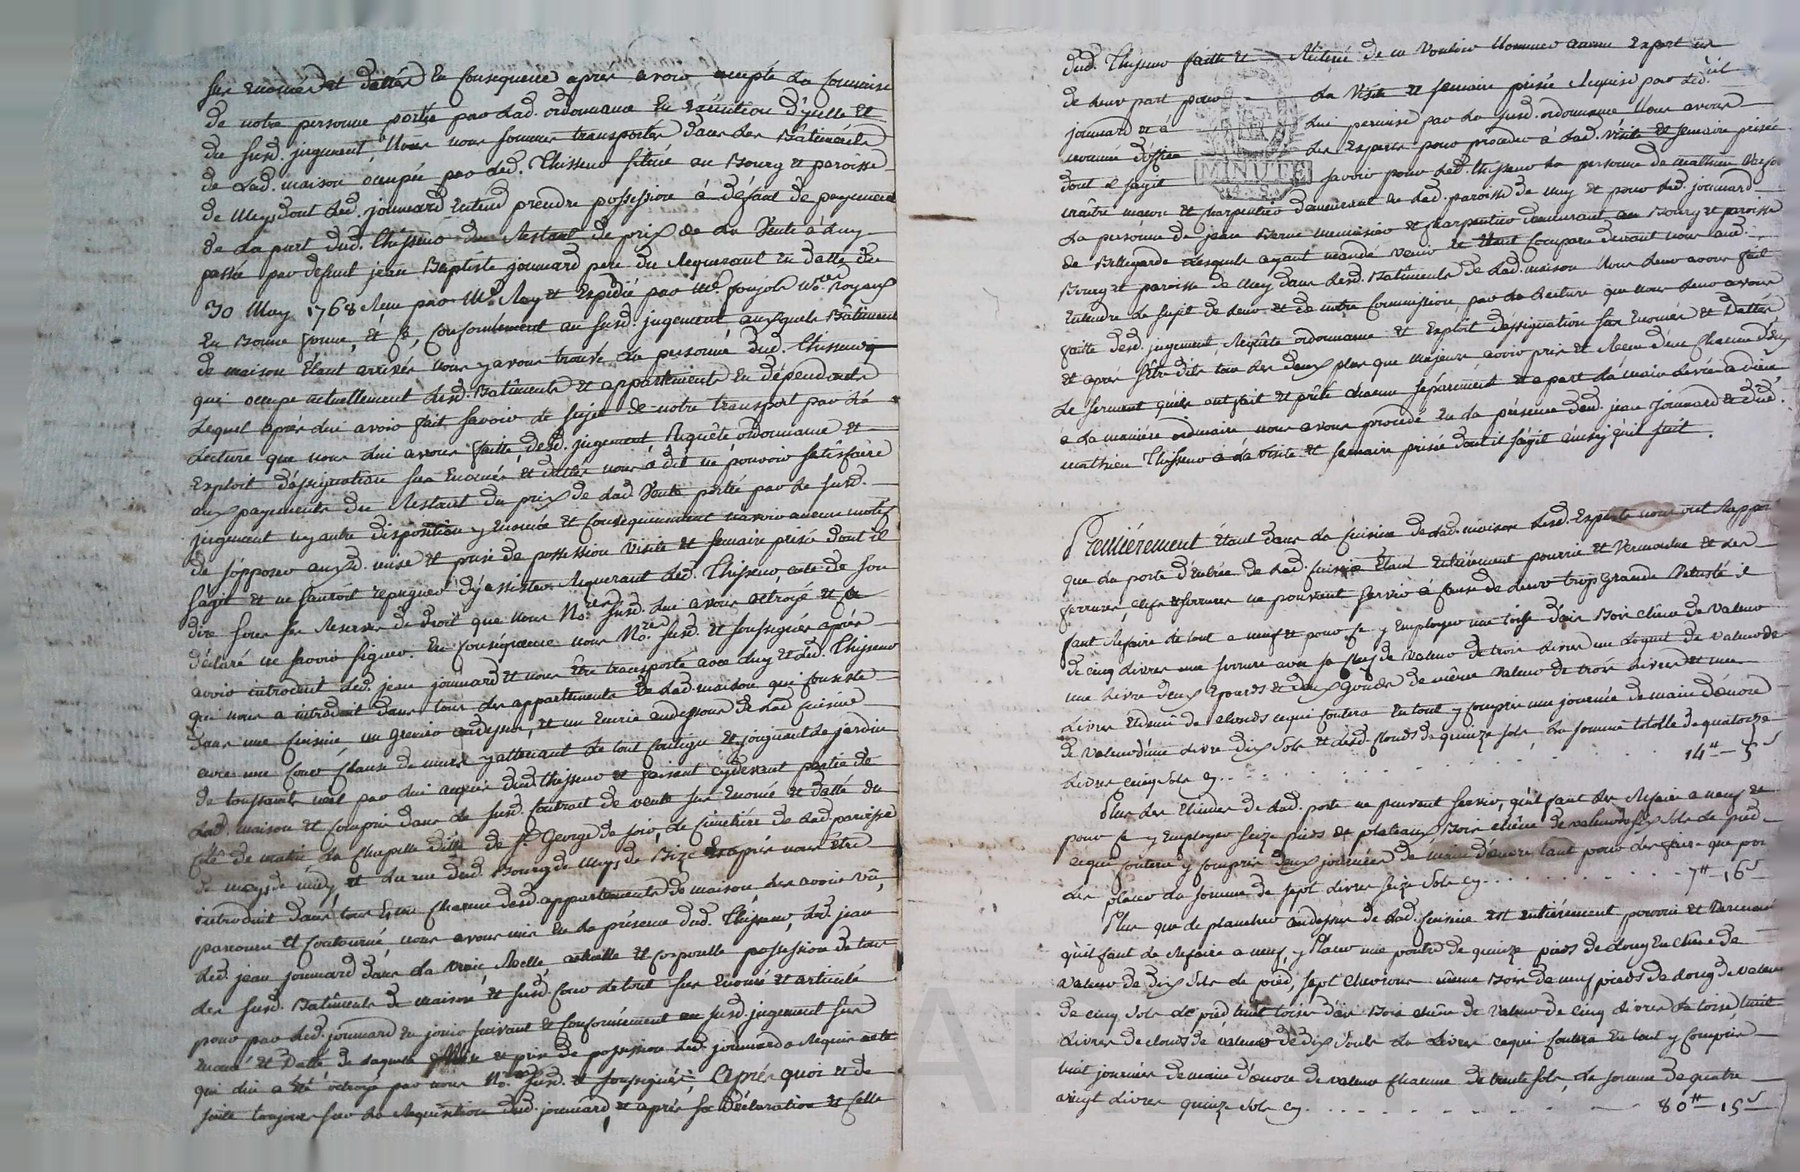 sus Enoncés et dattés En Consequence apres avoir accepté La Commission
de notre personne portée par Lad. ordonnance En Exécution d'ycelle et
du susd. jugement Nous nous sommes transportés dans Les Bâtiments
de Lad. maison occupée par Led. Thisseur située au Bourg et paroisse
de Meys dont Led. jounnard Entend prendre possession à défaut de payement
de La part dud. Thisseur du Restant du prix de La Vente à Luy
passée par deffunt jean Baptiste jounnard pere du Requerant En datte du
30 May 1768 Reçu par Me. Ray et Expédié par Me. Nores Royaux
En Bonne forme, et conformément au susd. jugement auxquels Batiments
de maison Etant arrivés nous y avons trouvé La personne dud. Thisseur
qui occupe actuellement Lesd. Batiments et appartements En dépendants
Lequel après Lui avoir fait savoir Le sujet de notre transport par La
Lecture que nous Lui avons faitte desd. jugement Requête ordonnance et
Exploit d'assignation sus Enoncés et dattés nous à dit ne pouvoir satisfaire
aux payements du Restant du prix de Lad. Vente portée par Le susd.
jugement n'y autre disposition y Enoncée et Consequemment n'avoir aucun motif
de s'opposer auxd. mise et prise de possession Visite et semaire prisée dont il
s'agit et ne sauroit repugner d'y assister Requerant Led. Thisseur, acte de son
dire sous ses Reserves de droit que nous Nores susd. Lui avons octroyé et a
déclaré ne savoir signer. En conséquence nous Nore. susd. et soussigné après
avoir introduit Led. jean jounnard et nous Etre transporté avec Luy et Led. Thisseur
qui nous a introduit dans tous Les appartements de Lad. maison qui consiste
dans une Cuisine un grenier audessus, et un Ecurie audessous de Lad. Cuisine
avec une Cour Clause de murs y attenant Le tout Contigu et joignant Le jardin
de toussaint par Lui acquis dud. Thisseur et faisant cydevant partie de
Lad. maison et Compris dans Le susd. Contrat de vente sus Enoncé et datté du
Côté de matin La Chapelle ditte de St. George de soir, Le Cimetiére de Lad. paroisse
de meys de midy, et La rue dud. Bourg de Meys de Bize Et après nous Etre
introduit dans tous Et un Chacun desd. appartements de maison, Les avoir vû,
parcouru et Contourné nous avons mis En La présence dud. Thisseur, Led. jean
Led. jean jounnard dans La Vraie, Réelle, actuelle et Corporelle possession de tous
Les susd. Batiments de maison et susd. Cour Le tout sus Enoncé et articulé
pour par Led. jounnard En jouir suivant et Conformément au susd. jugement sus
Enoncé et Datté de Laquelle et prise de possession Led. jounnard a Requis acte
qui Lui a Eté octroyé par nous Nores susd. et soussigné; Après quoi et de
suite toujours sur La Requisition dud. jounnard, et après La Déclaration et Celle
dud. Thisseur faitte et Réitéré de ne Vouloir Nommer aucun Expert En
de Leur part pour La Visite et semaire prisée Requise par Led.
jounnard et à Lui permise par La susd. ordonnance Nous avons
nommé d'office Les Experts pour proceder à Lad. Visite et semaire prisée
dont il s'agit savoir pour Led. Thisseur La personne de mathieu
maître maçon et charpentier demeurant En Lad. paroisse de Meys et pour Led. jounnard
La personne de jean menuisier et charpentier demeurant au Bourg et paroisse
de Bellegarde Lesquels ayant mandé venir et Etant Comparu devant nous aud.
Bourg et paroisse de Meys dans Lesd. Batiments de Lad. maison Nous Leur avons fait
Entendre Le sujet de Leur et de notre Commission par La Lecture que nous Leur avons
faitte desd. jugement, Requête ordonnance et Exploit d'assignation sus Enoncés et Dattés
et après s'Etre dits tous Les deux plus que majeurs avoir pris et Reçu d'un Chacun d'Eux
Le serment quils ont fait et prêté chacun séparément et a part La main Levée a dieu
à La maniére ordinaire nous avons procédé En La présence dud. jean jounnard et dud.
mathieu Thisseur à La visite et semaire prisée dont il s'agit ainsy qu'il suit.
Premiérement Etant dans La Cuisine de Lad. maison Lesd. Experts nous ont Rapporté
que La porte d'Entrée de Lad. Cuisine Etant Entiérement pourrie et Vermoulue et Les
ferrures clefs et serrures ne pouvant servir à Cause de Leur trop grande Vetusté il
faut Refaire Le tout a neuf et pour Ce y Employer une toise d'ais Bois chêne de valeur
de cinq Livres une serrure avec sa clef de Valeur de trois Livres un Loquet de valeur de
une Livre deux Epards et deux gonds de même Valeur de trois Livres et une
Livre Et demi de Clouds cequi Coutera En tout y Compris une journée de main d'œuvre
de valeur d'une Livre dix sols et Lesd. Clouds de quinze sols, La somme totale de quatorze
Livres cinq sols cy . . . . . . . . . . 14tt — 5s
Plus Les Liteaux de Lad. porte ne peuvent servir, qu'il faut Les Refaire a neuf et
pour Ce y Employer seize pieds de plateaux Bois chêne de valeur de six sols Le pied
cequi Coutera y Compris deux journées de main d'œuvre tant pour Les faire que pour
Les placer La somme de sept Livres seize sols cy . . . . . . . 7tt — 16s
Plus que Le plancher audessus de Lad. Cuisine est entiérement pourrie et Vermoulu
qu'il faut Le Refaire a neuf, y Placer une poutre de quinze pieds de Long En chêne de
Valeur de dix sols Le pied, sept Chevrons même Bois de neuf pieds de Long de valeur
de cinq sols Le pied huit toises d'ais Bois chêne de Valeur de cinq Livres La toise huit
Livres de clouds de valeur de dix sols La Livre cequi Coutera En tout y Compris
huit journées de main d'œuvre de valeur chacune de trente sols, La somme de quatre
vingt Livres quinze sols cy . . . . . . . . 80tt — 15s
MINUTE
4. S.